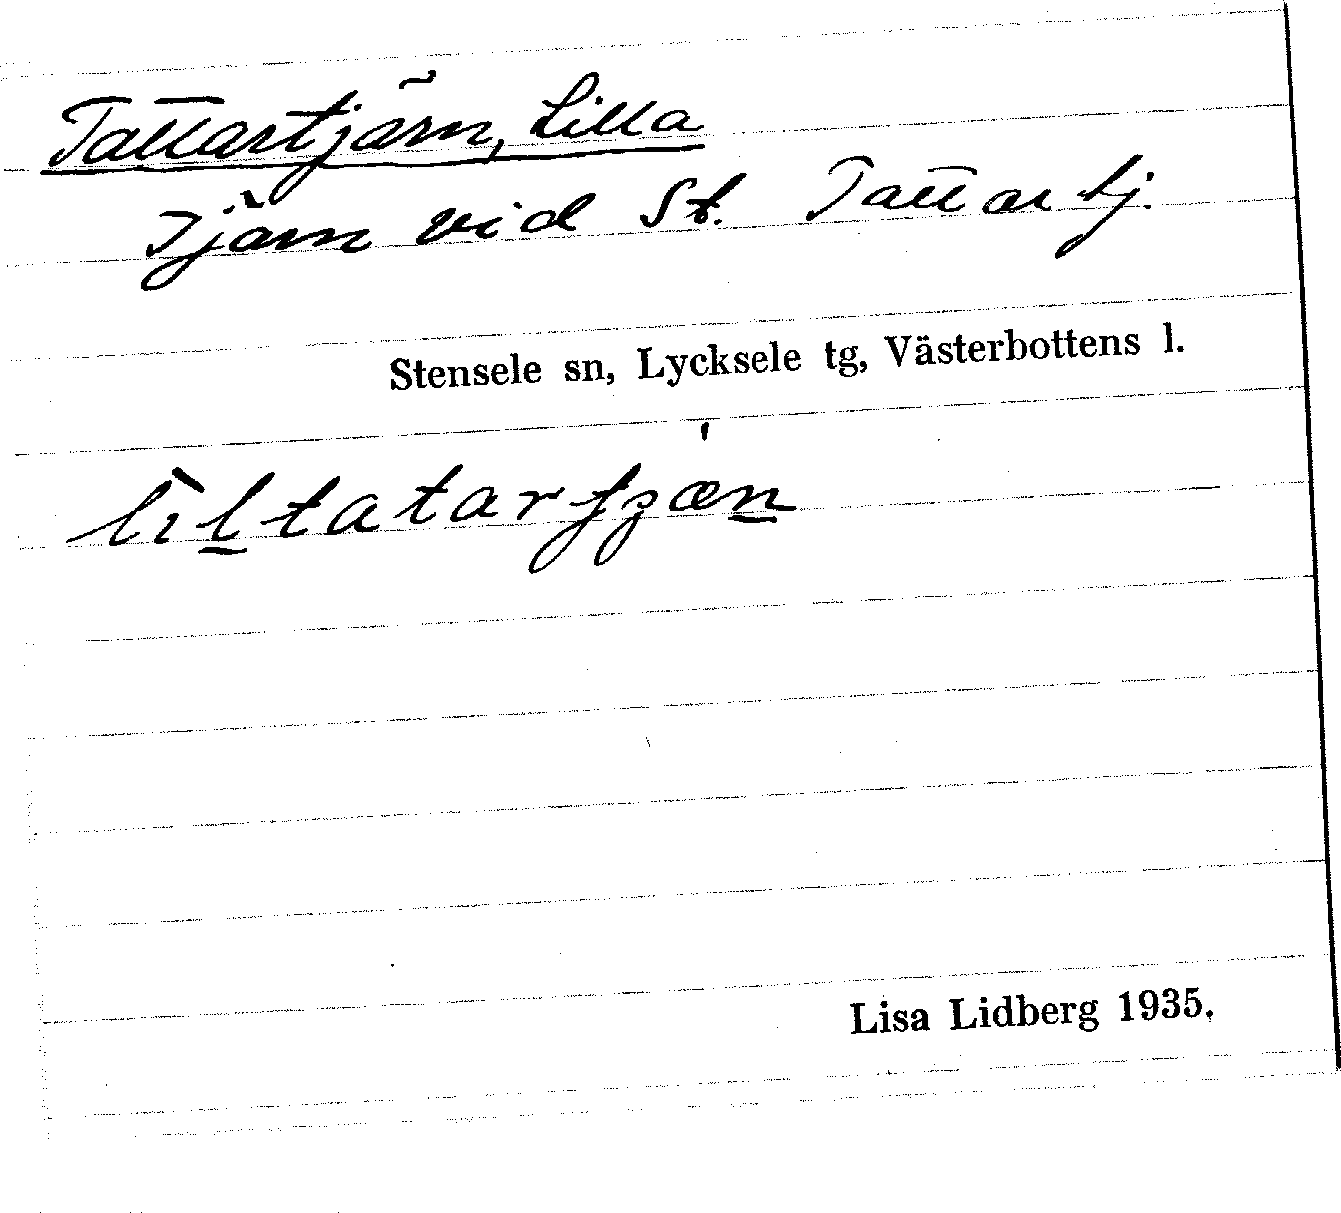 Tattartjärn, Lilla
Tjärn vid St. Tattartj.
Stensele sn, Lycksele tg, Västerbottens l.
Lisa Lidberg 1935.